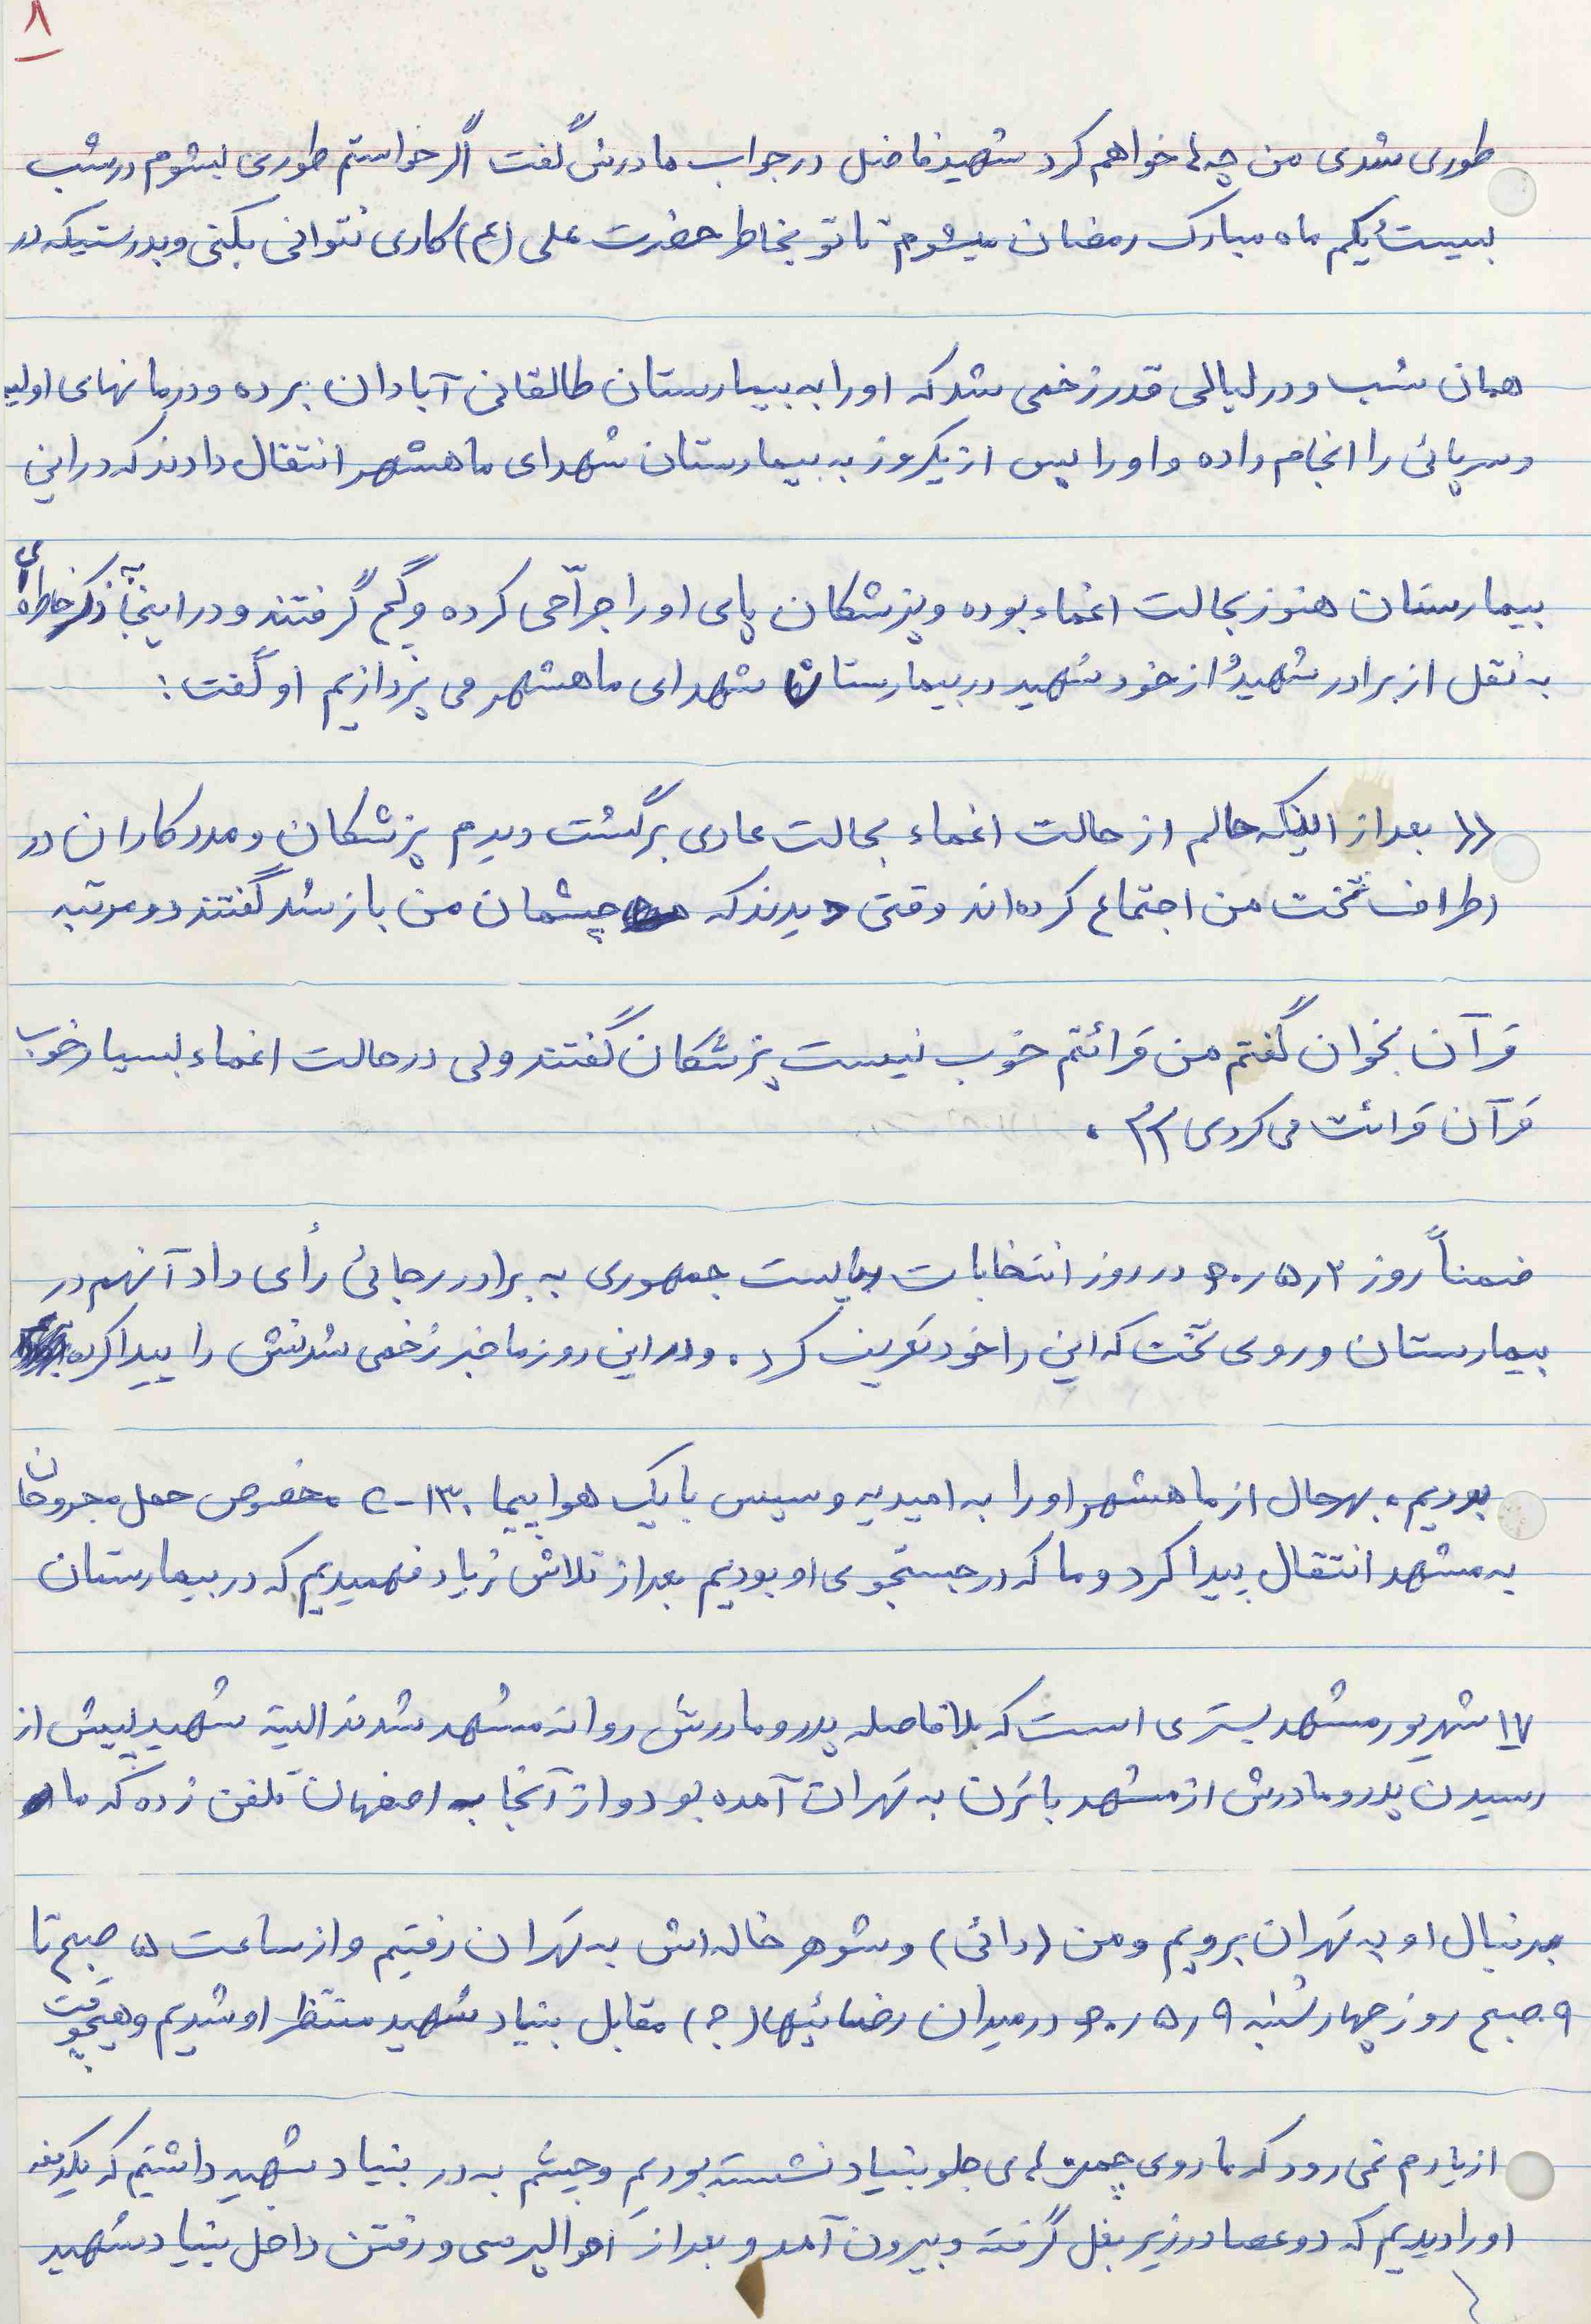 ۸
طوری شدی من چه‌ها خواهم کرد شهید فاضل در جواب مادرش گفت اگر خواستم طوری بشوم در شب
بیست‌ُیکم ماه مبارک رمضان میشوم تا تو بخاطر حضرت علی (ع) کاری نتوانی بکنی و بدرستیکه در
همان شب و در لیالی قدر زخمی شد که او را به بیمارستان طالقانی آبادان برده و درمانهای اولیه
و سرپائی را انجام داده و او را پس از یکروز به بیمارستان شهدای ماهشهر انتقال دادند که در این
بیمارستان هنوز بحالت اغماء بوده و پزشکان پای او را جرّاحی کرده و گچ گرفتند و در اینجا به ذکر خاطره‌ای
به نقل از برادر شهید از خود شهید در بیمارستان شهدای ماهشهر می پردازیم او گفت :
(( بعد از اینکه حالم از حالت اغماء بحالت عادی برگشت دیدم پزشکان و مددکاران در
اطراف تخت من اجتماع کرده‌اند وقتی دیدند که چشمان من باز شد گفتند دو مرتبه
قرآن بخوان گفتم من قرائتم خوب نیست پزشکان گفتند ولی در حالت اغماء بسیار خوب
قرآن قرائت می کردی )) .
ضمناً روز ۶۰/۵/۲ در روز انتخابات ریاست جمهوری به برادر رجائی رأی داد آنهم در
بیمارستان و روی تخت که این را خود تعریف کرد . و در این روز ما خبر زخمی شدنش را پیدا کرده
بودیم . بهرحال از ماهشهر او را به امیدیه و سپس با یک هواپیما C-۱۳۰ مخصوص حمل مجروحان
به مشهد انتقال پیدا کرد و ما که در جستجوی او بودیم بعد از تلاش زیاد فهمیدیم که در بیمارستان
۱۷ شهریور مشهد بستری است که بلافاصله پدر و مادرش روانه مشهد شدند البته شهید پیش از
رسیدن پدر و مادرش از مشهد با ترن به تهران آمده بود و از آنجا به اصفهان تلفن زده که ما
بدنبال او به تهران برویم و من (دائی) و شوهر خاله‌اش به تهران رفتیم و از ساعت ۵ صبح تا
۹ صبح روز چهارشنبه ۶۰/۵/۹ در میدان رضائیها(؟) مقابل بنیاد شهید منتظر او شدیم و هیچوقت
از یادم نمی رود که ما روی چمن‌های جلو بنیاد نشسته بودیم و چشم به در بنیاد شهید داشتیم که یکدفعه
او را دیدیم که دو عصا در زیر بغل گرفته و بیرون آمد و بعد از احوالپرسی و رفتن داخل بنیاد شهید